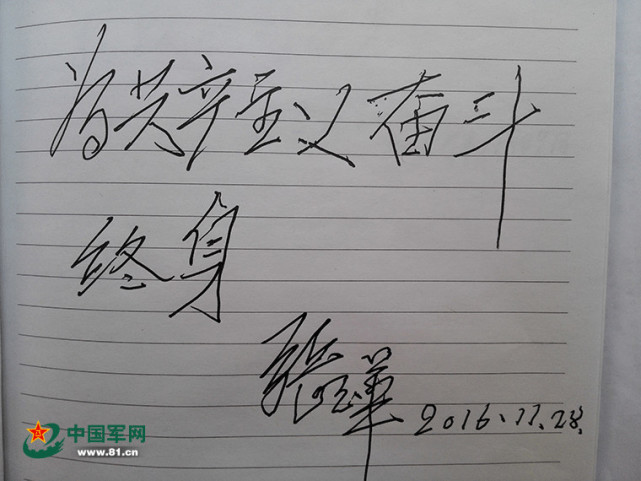 为共产主义奋斗
终身
张玉華 2016.11.28.
中国军网
www.81.cn